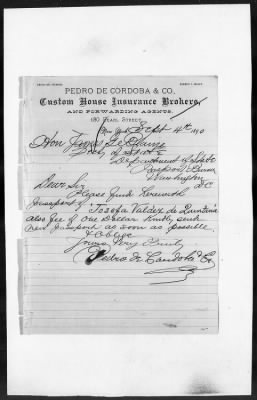 PEDRO DE CÓRDOBA & CO.
Custom House Insurance Brokers
AND FORWARDING AGENTS.
180 PEARL STREET.
New York Sept 4th 1890
Hon James G Blaine
Secy of State
Department of State
Passport Bureau
Washington
DC
Dear Sir
Please find herewith
passport of Josefa Valdez de Quintana
also fee of One Dollar Kindly send
new passport as soon as possible
& Oblige
Yours Very Truly
Pedro de Cordoba & Co